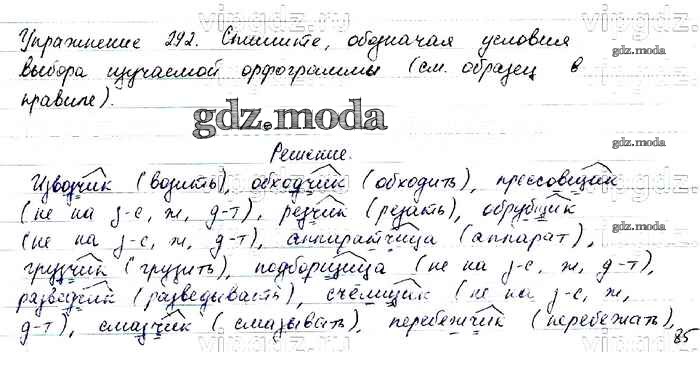 Упражнение 292. Спишите, обозначая условия
выбора изучаемой орфограммы (см. образец в
правиле).
gdz.moda
Решение.
Извозчик (возить), обходчик (обходить), прессовщик
(не на з-с, ж, д-т), резчик (резать), обрубщик
(не на з-с, ж, д-т), аппаратчица (аппарат),
грузчик (грузить), подборщица (не на з-с, ж, д-т),
разведчик (разведывать), счётщик (не на з-с, ж,
д-т), смазчик (смазывать), перебежчик (перебежать),
85
vipgdz.ru
gdz.moda